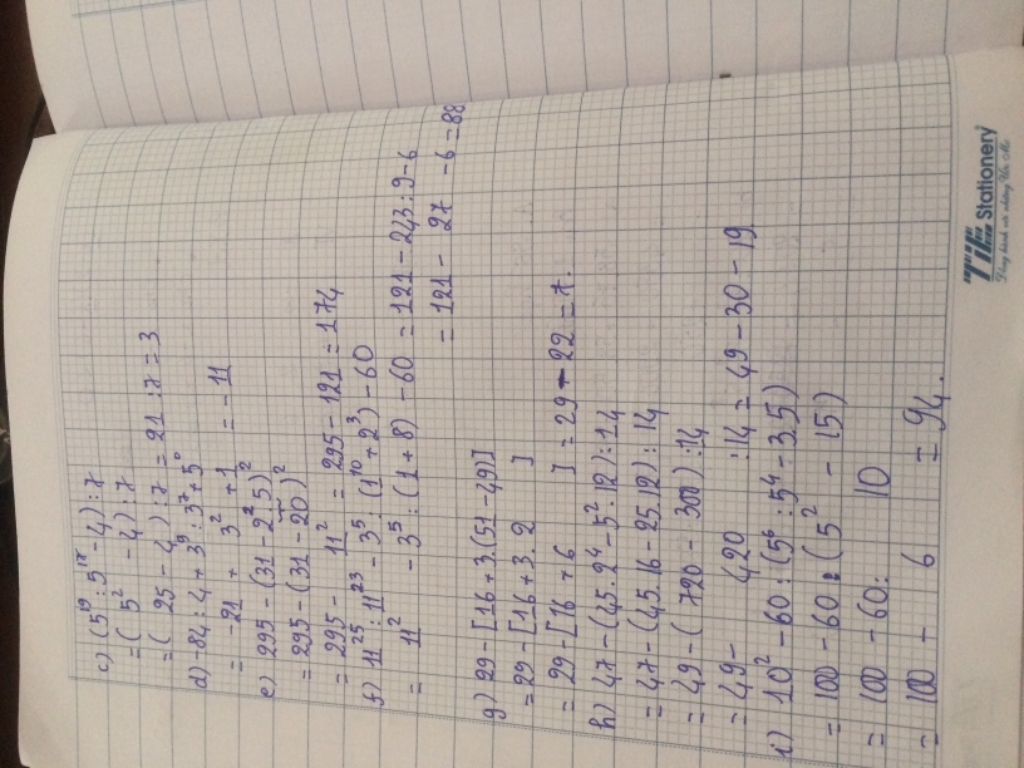 c) (5¹⁹ : 5¹⁷ - 4) : 7
= ( 5² - 4) : 7
= ( 25 - 4 ) : 7 = 21 : 7 = 3
d) -84 : 4 + 3⁹ : 3⁷ + 5⁰
= -21 + 3² + 1 = - 11
e) 295 - (31 - 2² 5)²
= 295 - (31 - 20)²
= 295 - 11² = 295 - 121 = 174
f) 11²⁵ : 11²³ - 3⁵ : (1¹⁰ + 2³) - 60
= 11² - 3⁵ : (1 + 8) - 60 = 121 - 243 : 9 - 6
= 121 - 27 - 6 = 88
g) 29 - [16 + 3.(51 - 49)]
= 29 - [16 + 3. 2 ]
= 29 - [16 + 6 ] = 29 - 22 = 7.
h) 47 - (45.2⁴ - 5².12) : 14
= 47 - (45.16 - 25.12) : 14
= 49 - ( 720 - 300) : 14
= 49 - 420 : 14 = 49 - 30 = 19
i) 10² - 60 : (5⁶ : 5⁴ - 3.5)
= 100 - 60 : ( 5² - 15)
= 100 - 60 : 10
= 100 - 6 = 94.
TiTi Stationery